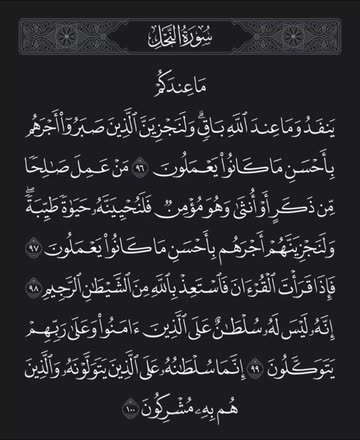 سُورَةُ النَّحْلِ
مَا عِندَكُمْ
يَنفَدُ وَمَا عِندَ ٱللَّهِ بَاقٍ ۗ وَلَنَجْزِيَنَّ ٱلَّذِينَ صَبَرُوٓا۟ أَجْرَهُم
بِأَحْسَنِ مَا كَانُوا۟ يَعْمَلُونَ ٩٦ مَنْ عَمِلَ صَٰلِحًا
مِّن ذَكَرٍ أَوْ أُنثَىٰ وَهُوَ مُؤْمِنٌ فَلَنُحْيِيَنَّهُۥ حَيَوٰةً طَيِّبَةً ۖ
وَلَنَجْزِيَنَّهُمْ أَجْرَهُم بِأَحْسَنِ مَا كَانُوا۟ يَعْمَلُونَ ٩٧
فَإِذَا قَرَأْتَ ٱلْقُرْءَانَ فَٱسْتَعِذْ بِٱللَّهِ مِنَ ٱلشَّيْطَٰنِ ٱلرَّجِيمِ ٩٨
إِنَّهُۥ لَيْسَ لَهُۥ سُلْطَٰنٌ عَلَى ٱلَّذِينَ ءَامَنُوا۟ وَعَلَىٰ رَبِّهِمْ
يَتَوَكَّلُونَ ٩٩ إِنَّمَا سُلْطَٰنُهُۥ عَلَى ٱلَّذِينَ يَتَوَلَّوْنَهُۥ وَٱلَّذِينَ
هُم بِهِۦ مُشْرِكُونَ ١٠٠